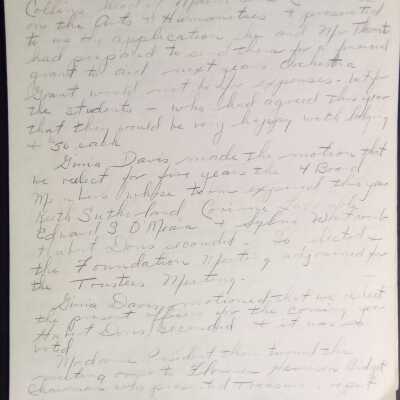 College head of
on the Arts & Humanities & presented
to us the application she and Mr
had prepared to send them for a financial
grant to aid next years orchestra
Grant would not be for expenses - but for
the students - who had agreed this year
that they would be very happy with
$50 each
Davis made the motion that
we reelect for five years the 4 Board
Members whose term expired this year
Ruth Sutherland
Edward J O'Meara & Sylvia
Harriet Doris seconded. So elected &
the Foundation Meeting adjourned for
the Trustees Meeting.
Davis motioned that we reelect
the present officers for the coming year
Harriet Doris seconded & it was so
voted
Madame President then turned the
meeting over to Florence Budget
Chairman who presented Treasurers report